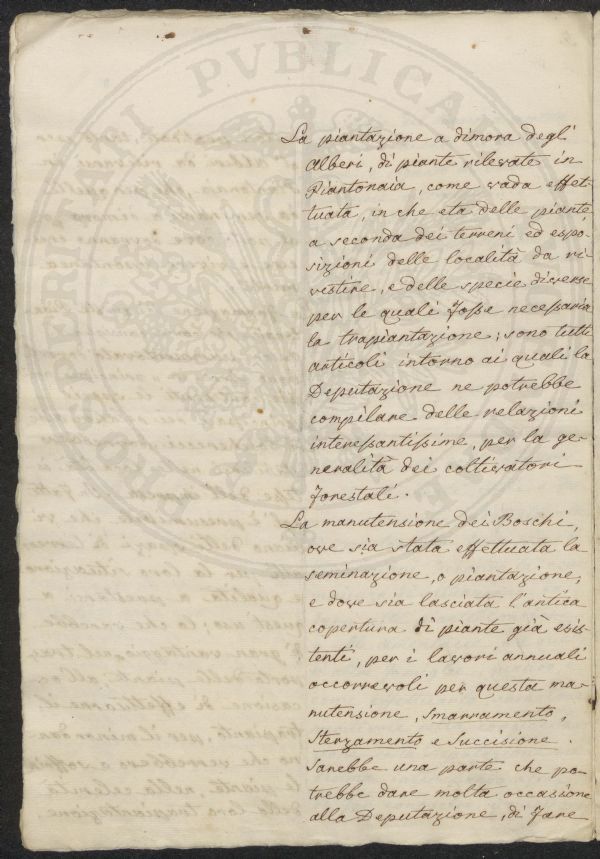 La piantazione a dimora degl'
Alberi, di piante rilevate in
Piantonaia, come vada effet-
tuata, in che età delle piante
a seconda dei terreni ed espo-
sizioni delle località da ri-
vestire, e delle specie diverse
per le quali fosse necessaria
la trapiantazione; sono tutti
articoli intorno ai quali la
Deputazione ne potrebbe
compilare delle relazioni
interessantissime, per la ge-
neralità dei coltivatori
forestali.
La manutensione dei Boschi,
ove sia stata effettuata la
seminazione, o piantazione,
e dove sia lasciata l'antica
copertura di piante già esis-
tenti, per i lavori annuali
occorrevoli per questa ma-
nutensione, smarramento,
sterzamento e succisione.
Sarebbe una parte che po-
trebbe dare molta occasione
alla Deputazione, di fare